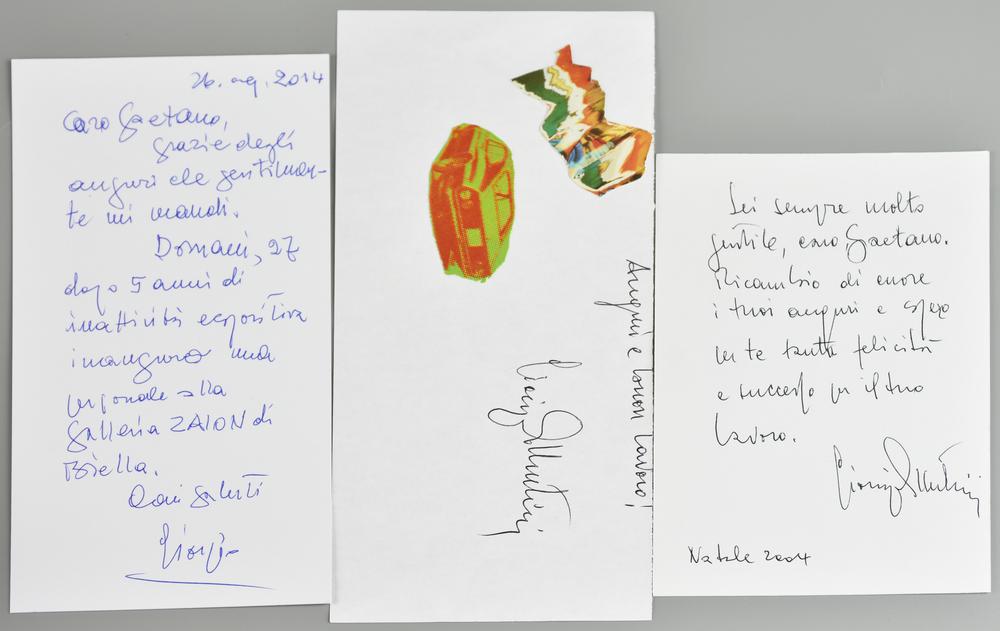 26. ag. 2014
Caro Gaetano,
grazie degli
auguri che gentilmen-
te mi mandi.
Domani, 27
dopo 5 anni di
inattività espositiva
inauguro una
personale alla
Galleria ZAION di
Biella.
Cari saluti
Giorgio
Auguri e buon lavoro!
Sei sempre molto
gentile, caro Gaetano.
Ricambio di cuore
i tuoi auguri e spero
in te tanta felicità
e successo per il tuo
lavoro.
Natale 2004